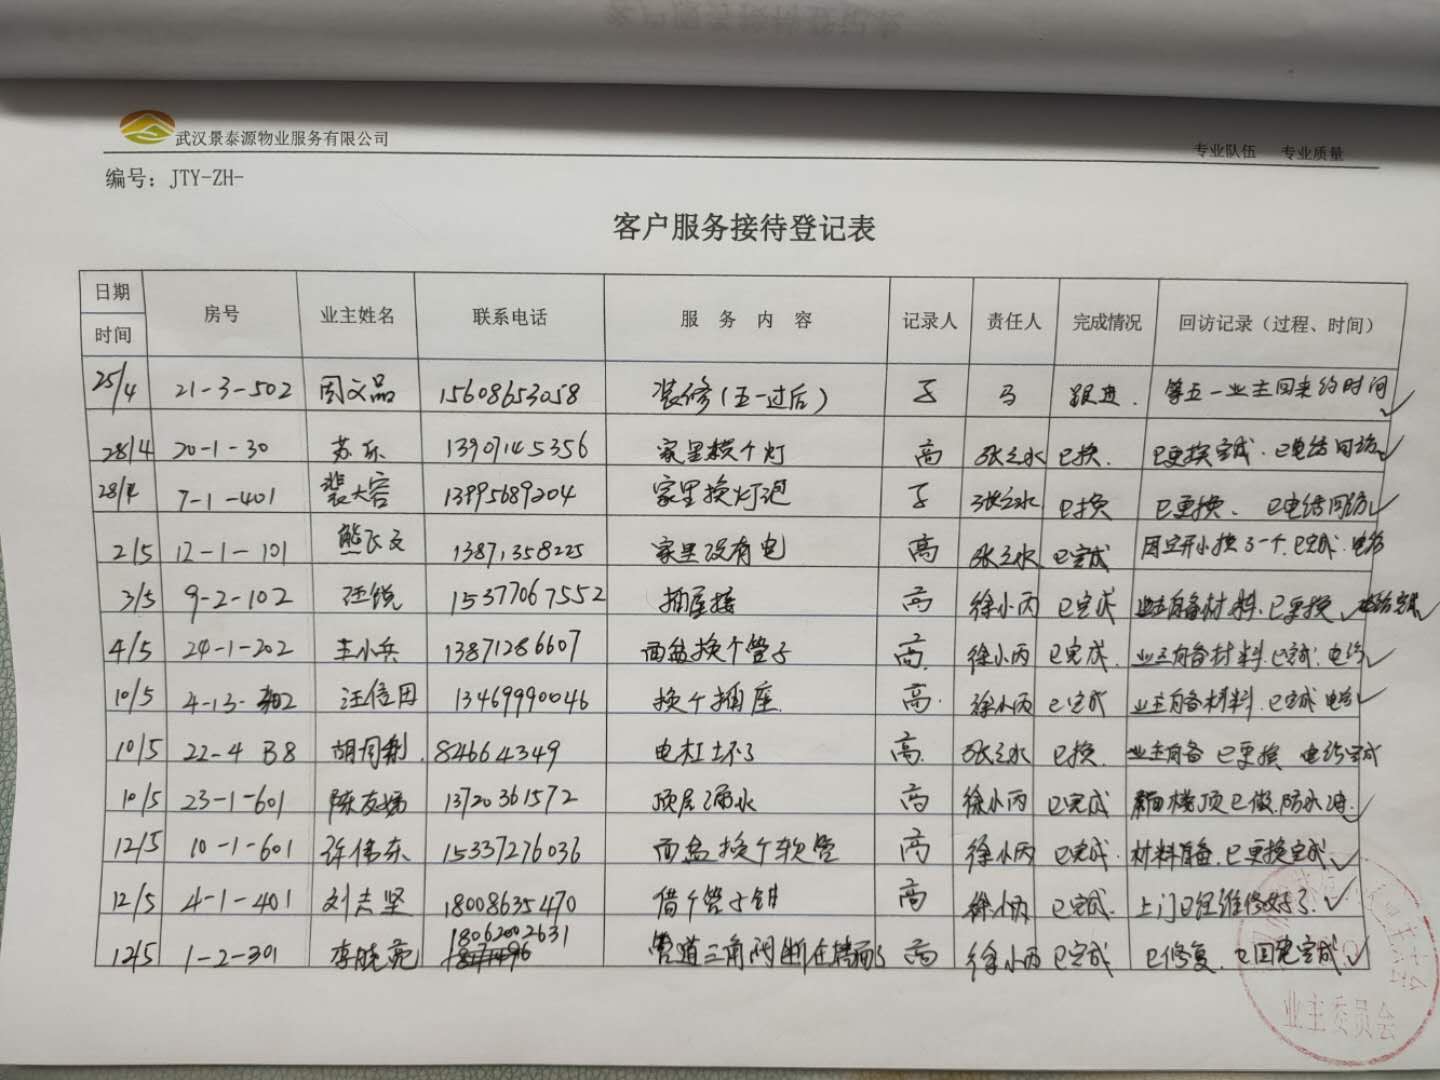 客户服务接待登记表
武汉景泰源物业服务有限公司
专业队伍 专业质量
编号：JTY-ZH-
客户服务接待登记表
日期 时间 房号 业主姓名 联系电话 服务内容 记录人 责任人 完成情况 回访记录（过程、时间）
25/4 21-3-502 周文品 15608653058 装修（五一过后） 马 跟进. 等五一业主回来约时间✓
28/4 20-1-30 苏乐 13907145356 家里换个灯 高 张之水 已换. 已更换完成.已电话回访✓
28/4 7-1-401 裴大容 13995689204 家里换灯泡 张之水 已换 已更换、已电话回访✓
2/5 12-1-101 熊飞文 13871358225 家里没有电 高 张之水 已完成 换了一个.已完成.
3/5 9-2-102 汪锐 15377067552 插座接 高 徐小丙 已完成 业主自备材料.已更换✓
4/5 24-1-202 王小兵 13871286607 面盆换个管子 高. 徐小丙 已完成. 业主自备材料.已完成.电话✓
10/5 4-13-302 汪信田 13469990046 换个插座. 高. 徐小丙 已完成 业主自备材料.已完成 电话✓
10/5 22-4 B8 824664349 电杠坏了 高. 张之水 已换. 业主自备 已更换 电话完成
10/5 23-1-601 陈友娣 13720361572 顶层漏水 高 徐小丙 已完成 楼顶已做.防水✓
12/5 10-1-601 许伟东 15337276036 面盆换个软管 高 徐小丙 已完成. 材料自备.已更换完成✓
12/5 4-1-401 刘志坚 18008635470 借个管子钳 高 徐小丙 已完成. 上门已经维修好了.✓
12/5 1-2-301 李晓亮 18062002631 管道三角阀断在墙面了 高 徐小丙 已完成 已修复.已回电完成✓
业主委员会